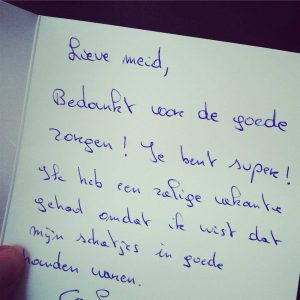 Lieve meid,
Bedankt voor de goede
zorgen! Je bent super!
Ik heb een zalige vakantie
gehad omdat ik wist dat
mijn schatjes in goede
handen waren.